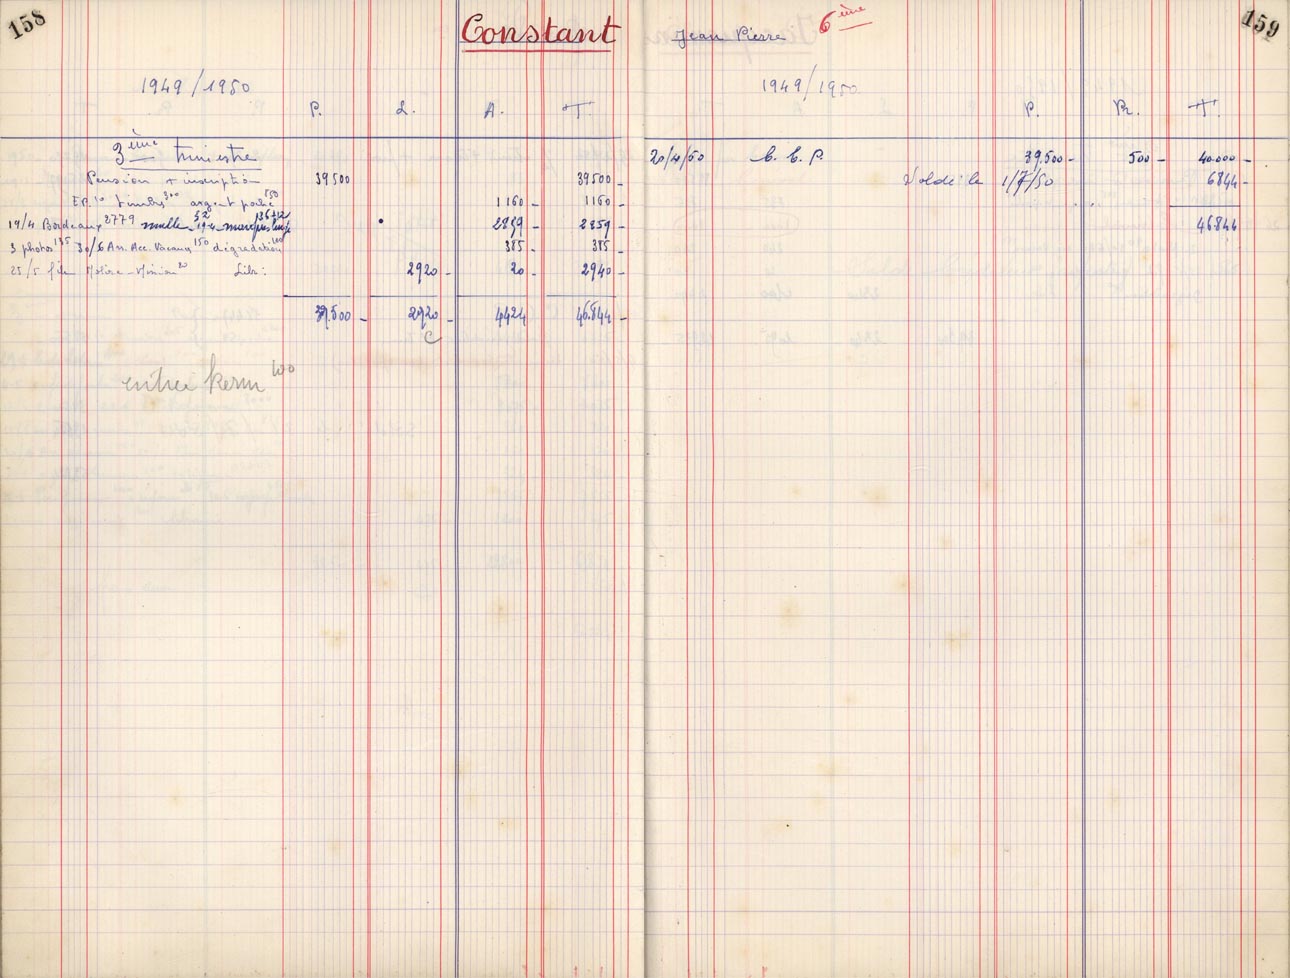 158
Constant Jean Pierre 6ème
159
1949/1950
P. L. A. T.
3ème trimestre
Pension + inscription 39500 39500 -
EP. 10 timbres 300 argent poche 850 1160 - 1160 -
19/4 Bordeaux 2779 malle 52 19-4 2859 - 2859 -
3 photos 135 30/6 Ass. Acc. Vacances 150 dégradation 100 385 - 385 -
25/5 film Molière 20 Libr: 2920 - 20 - 2940 -
39.500 - 2920 - 4424 46.844 -
C
entrée kerm 100
1949/1950
P. R. T.
20/4/50 C. C. P. 39.500 - 500 - 40.000 -
Soldé le 1/7/50 6844 -
46844